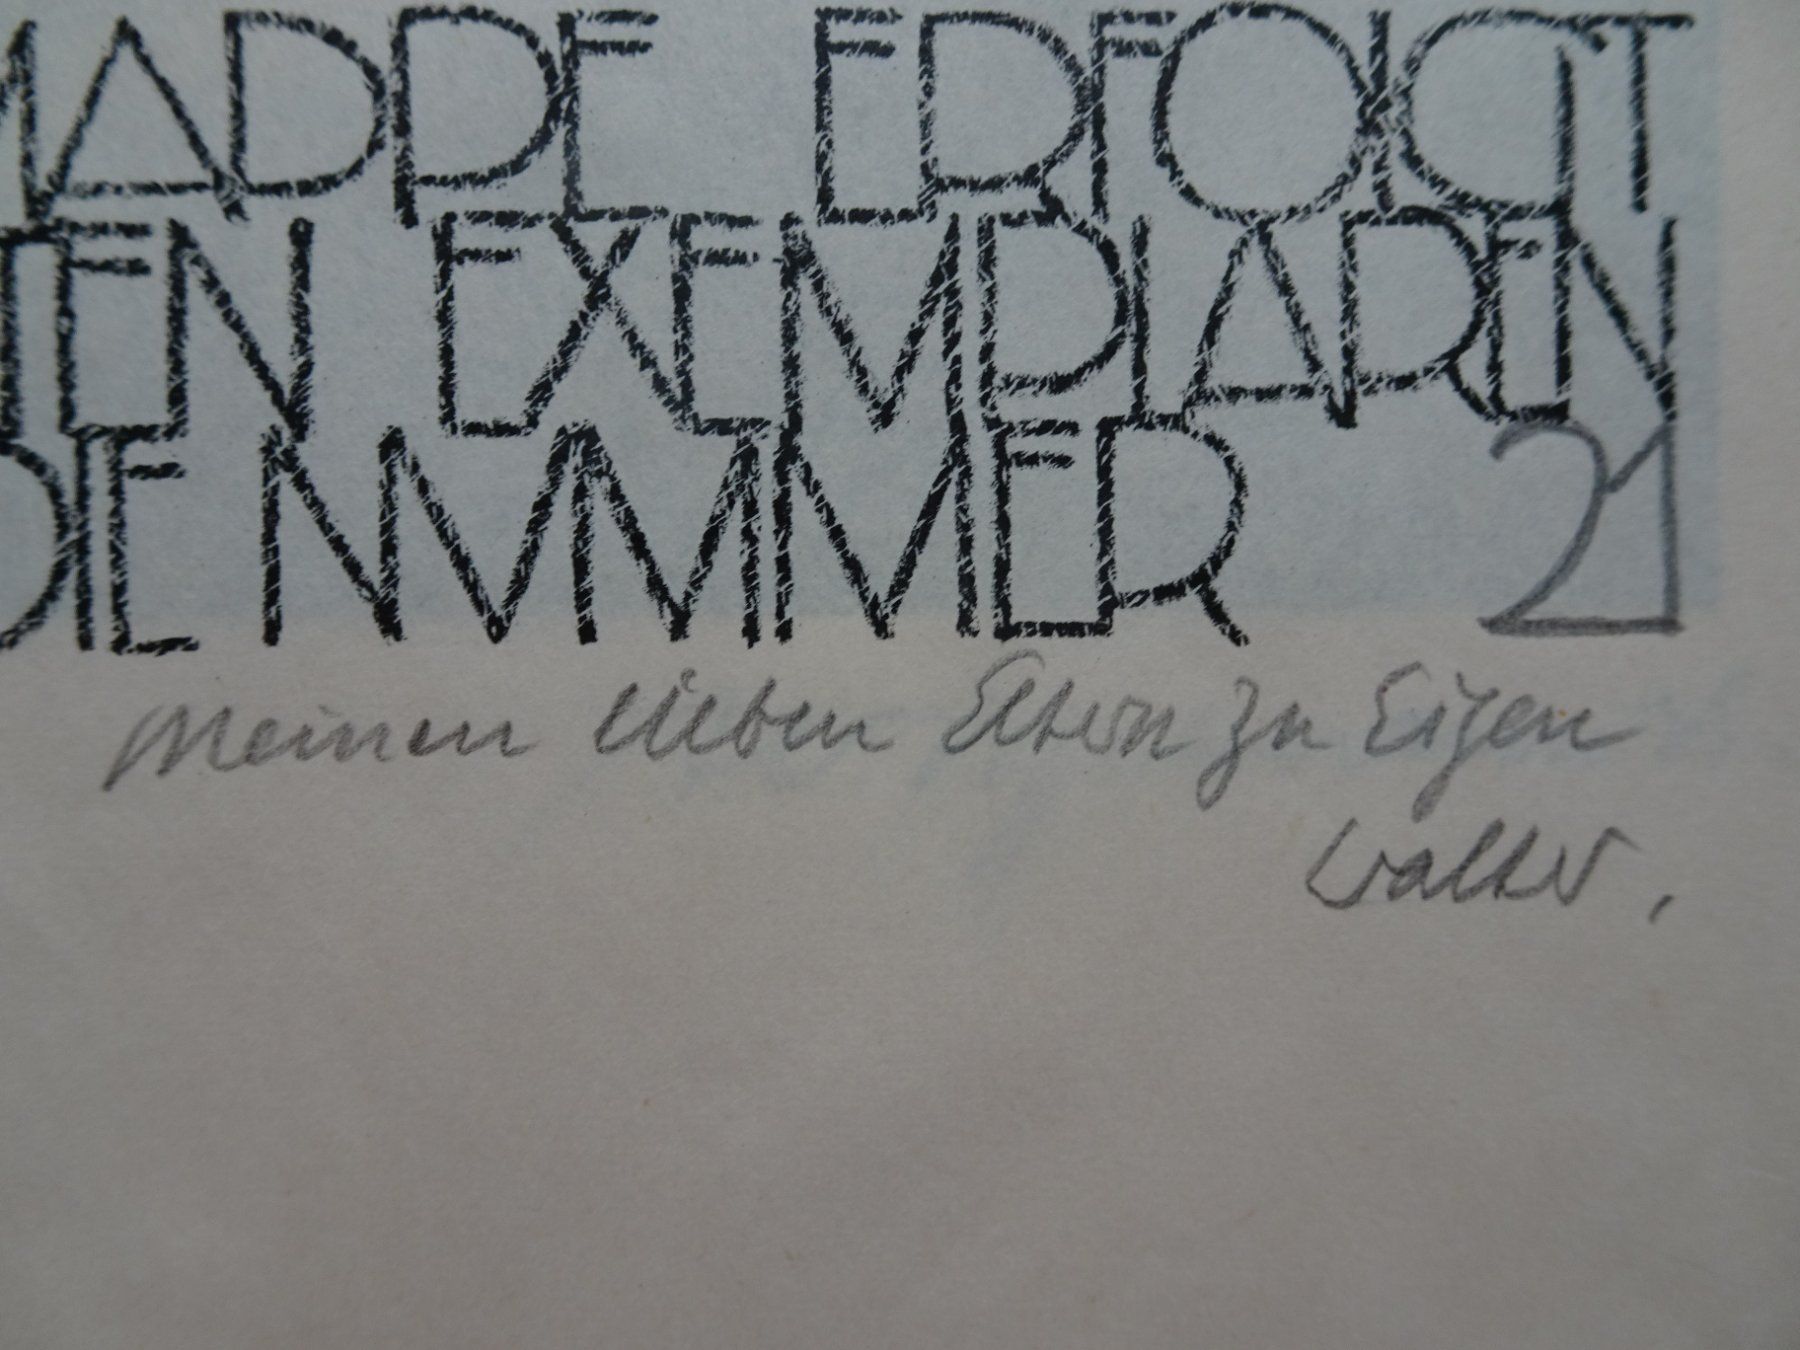 MAPPE ERFOLGT
TEN EXEMPLAREN
DIE NUMMER 21
Meinen lieben Eltern zu Eigen
Walter,